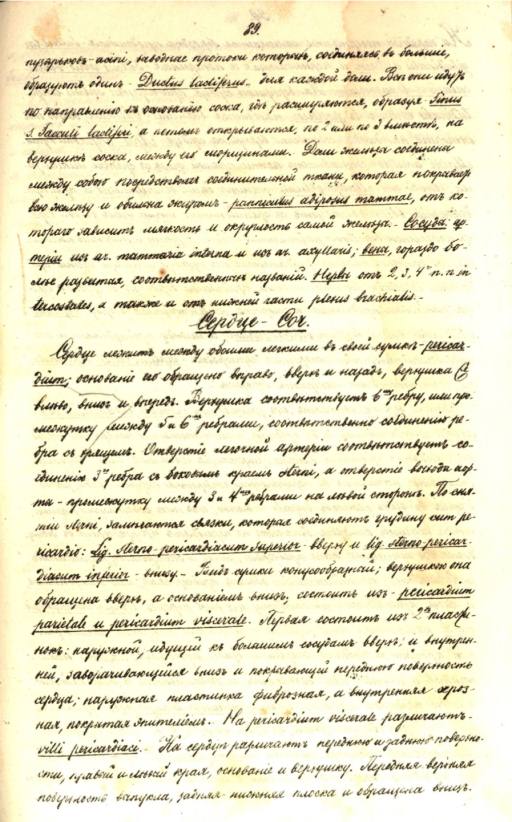 89.
пузырьковъ-acini, выводные протоки которыхъ, соединяясь въ большіе,
образуютъ одинъ - Ductus lactiferus - для каждой доли. Всѣ они идутъ
по направленію къ основанію соска, гдѣ расширяются, образуя Sinus
s. Sacculi lactiferi, а потомъ открываются, по 2 или по 3 вмѣстѣ, на
верхушкѣ соска, между его морщинами. Доли железы соединены
между собою посредствомъ соединительной ткани, которая покрываетъ
всю железу и обильна жиромъ - panniculus adiposus mammae, отъ ко-
тораго зависитъ мягкость и округлость самой железы. Сосуды: ар-
теріи изъ ar. mammaria interna и изъ ar. axillaris; вены, гораздо бо-
лѣе развитыя, соотвѣтственныхъ названій. Нервы отъ 2, 3, 4 n. n. in-
tercostales, а также и отъ нижней части plexus brachialis.-
Сердце - Cor.
Сердце лежитъ между обоими легкими въ своей сумкѣ - pericar-
dium; основаніе его обращено вправо, вверхъ и назадъ, верхушка
влѣво, внизъ и впередъ. Верхушка соотвѣтствуетъ 6му ребру, или про-
межутку между 5 и 6 ребрами, соотвѣтственно соединенію ре-
бра съ хрящемъ. Отверстіе легочной артеріи соотвѣтствуетъ со-
единенію 3го ребра съ боковымъ краемъ sterni, а отверстіе восход. аор-
ты - промежутку между 3 и 4 ребрами на лѣвой сторонѣ. По сня-
тіи sterni, замѣчаются связки, которыя соединяютъ грудину cum pe-
ricardio: Lig. sterno-pericardiacum superior - вверху и lig. sterno-pericar-
diacum inferior - внизу. - Видъ сумки конусообразный; верхушкою она
обращена вверхъ, а основаніемъ внизъ, состоитъ изъ - pericardium
parietale и pericardium viscerale. Первая состоитъ изъ 2хъ пласти-
нокъ: наружной, идущей къ большимъ сосудамъ вверхъ, и внутрен-
ней, заворачивающейся внизъ и покрывающей переднюю поверхность
сердца; наружная пластинка фиброзная, а внутренняя сероз-
ная, покрытая эпителіемъ. На pericardium viscerale различаютъ -
villi pericardiaci. На сердцѣ различаютъ переднюю и заднюю поверхно-
сти, правый и лѣвый края, основаніе и верхушку. Передняя верхняя
поверхность выпукла, задняя-нижняя плоска и обращена внизъ.